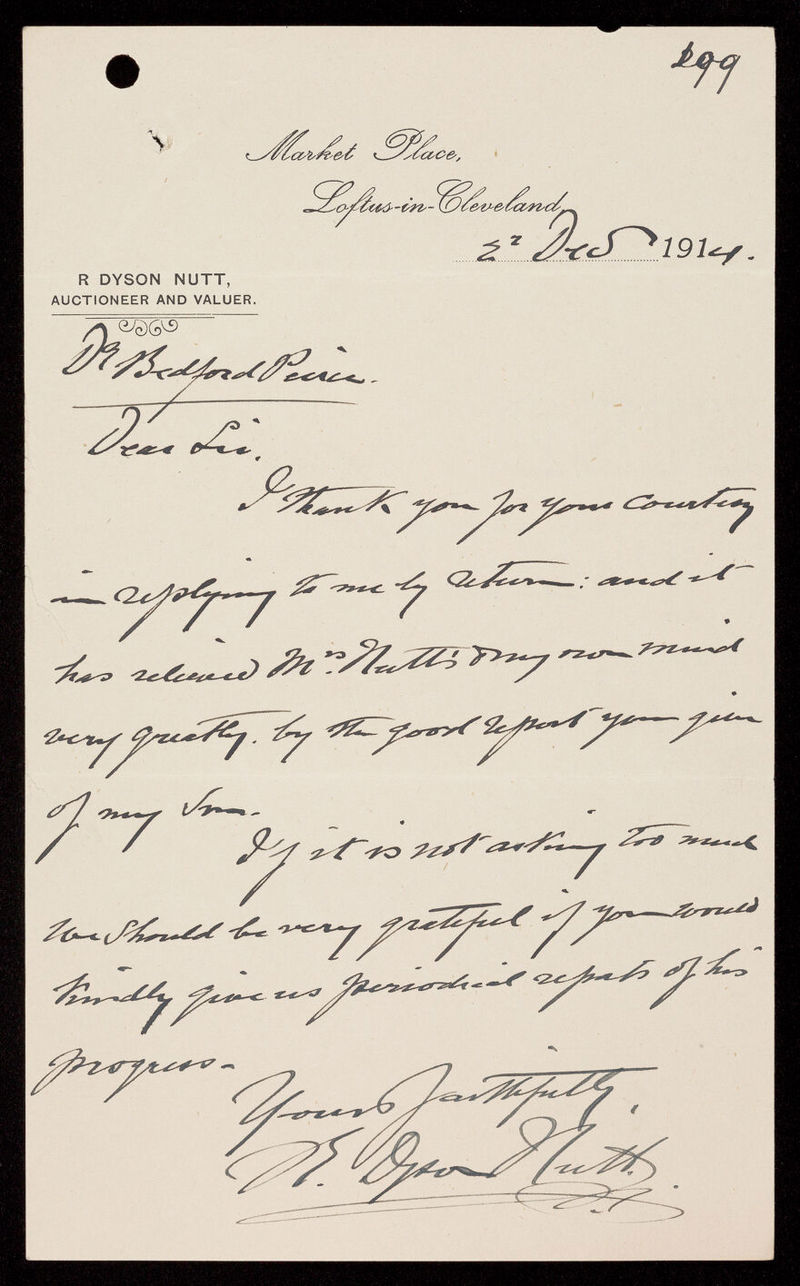 299
Market Place,
Loftus-in-Cleveland,
2 Dec 1914.
R DYSON NUTT,
AUCTIONEER AND VALUER.
Dr Bedford Peirce.
Dear Sir,
I thank you for your courtesy
in replying to me by return: and it
has relieved Mrs. Nutt's & my own mind
very greatly. by the good report you give
of my Son.
If it is not asking too much
we should be very grateful if you would
kindly give us periodical reports of his
progress-
Yours faithfully,
R. Dyson Nutt.